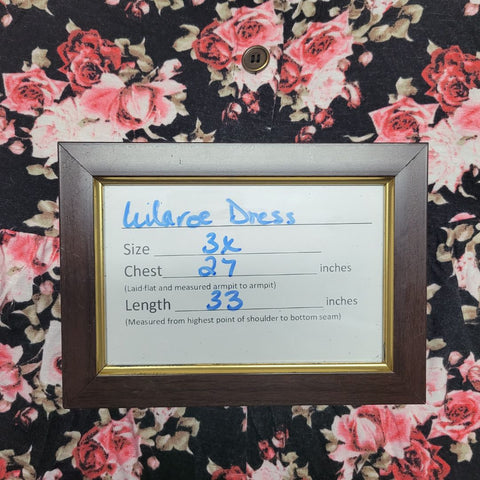 Lularoe Dress
Size 3x
Chest 27 inches
(Laid flat and measured armpit to armpit)
Length 33 inches
(Measured from highest point of shoulder to bottom seam)